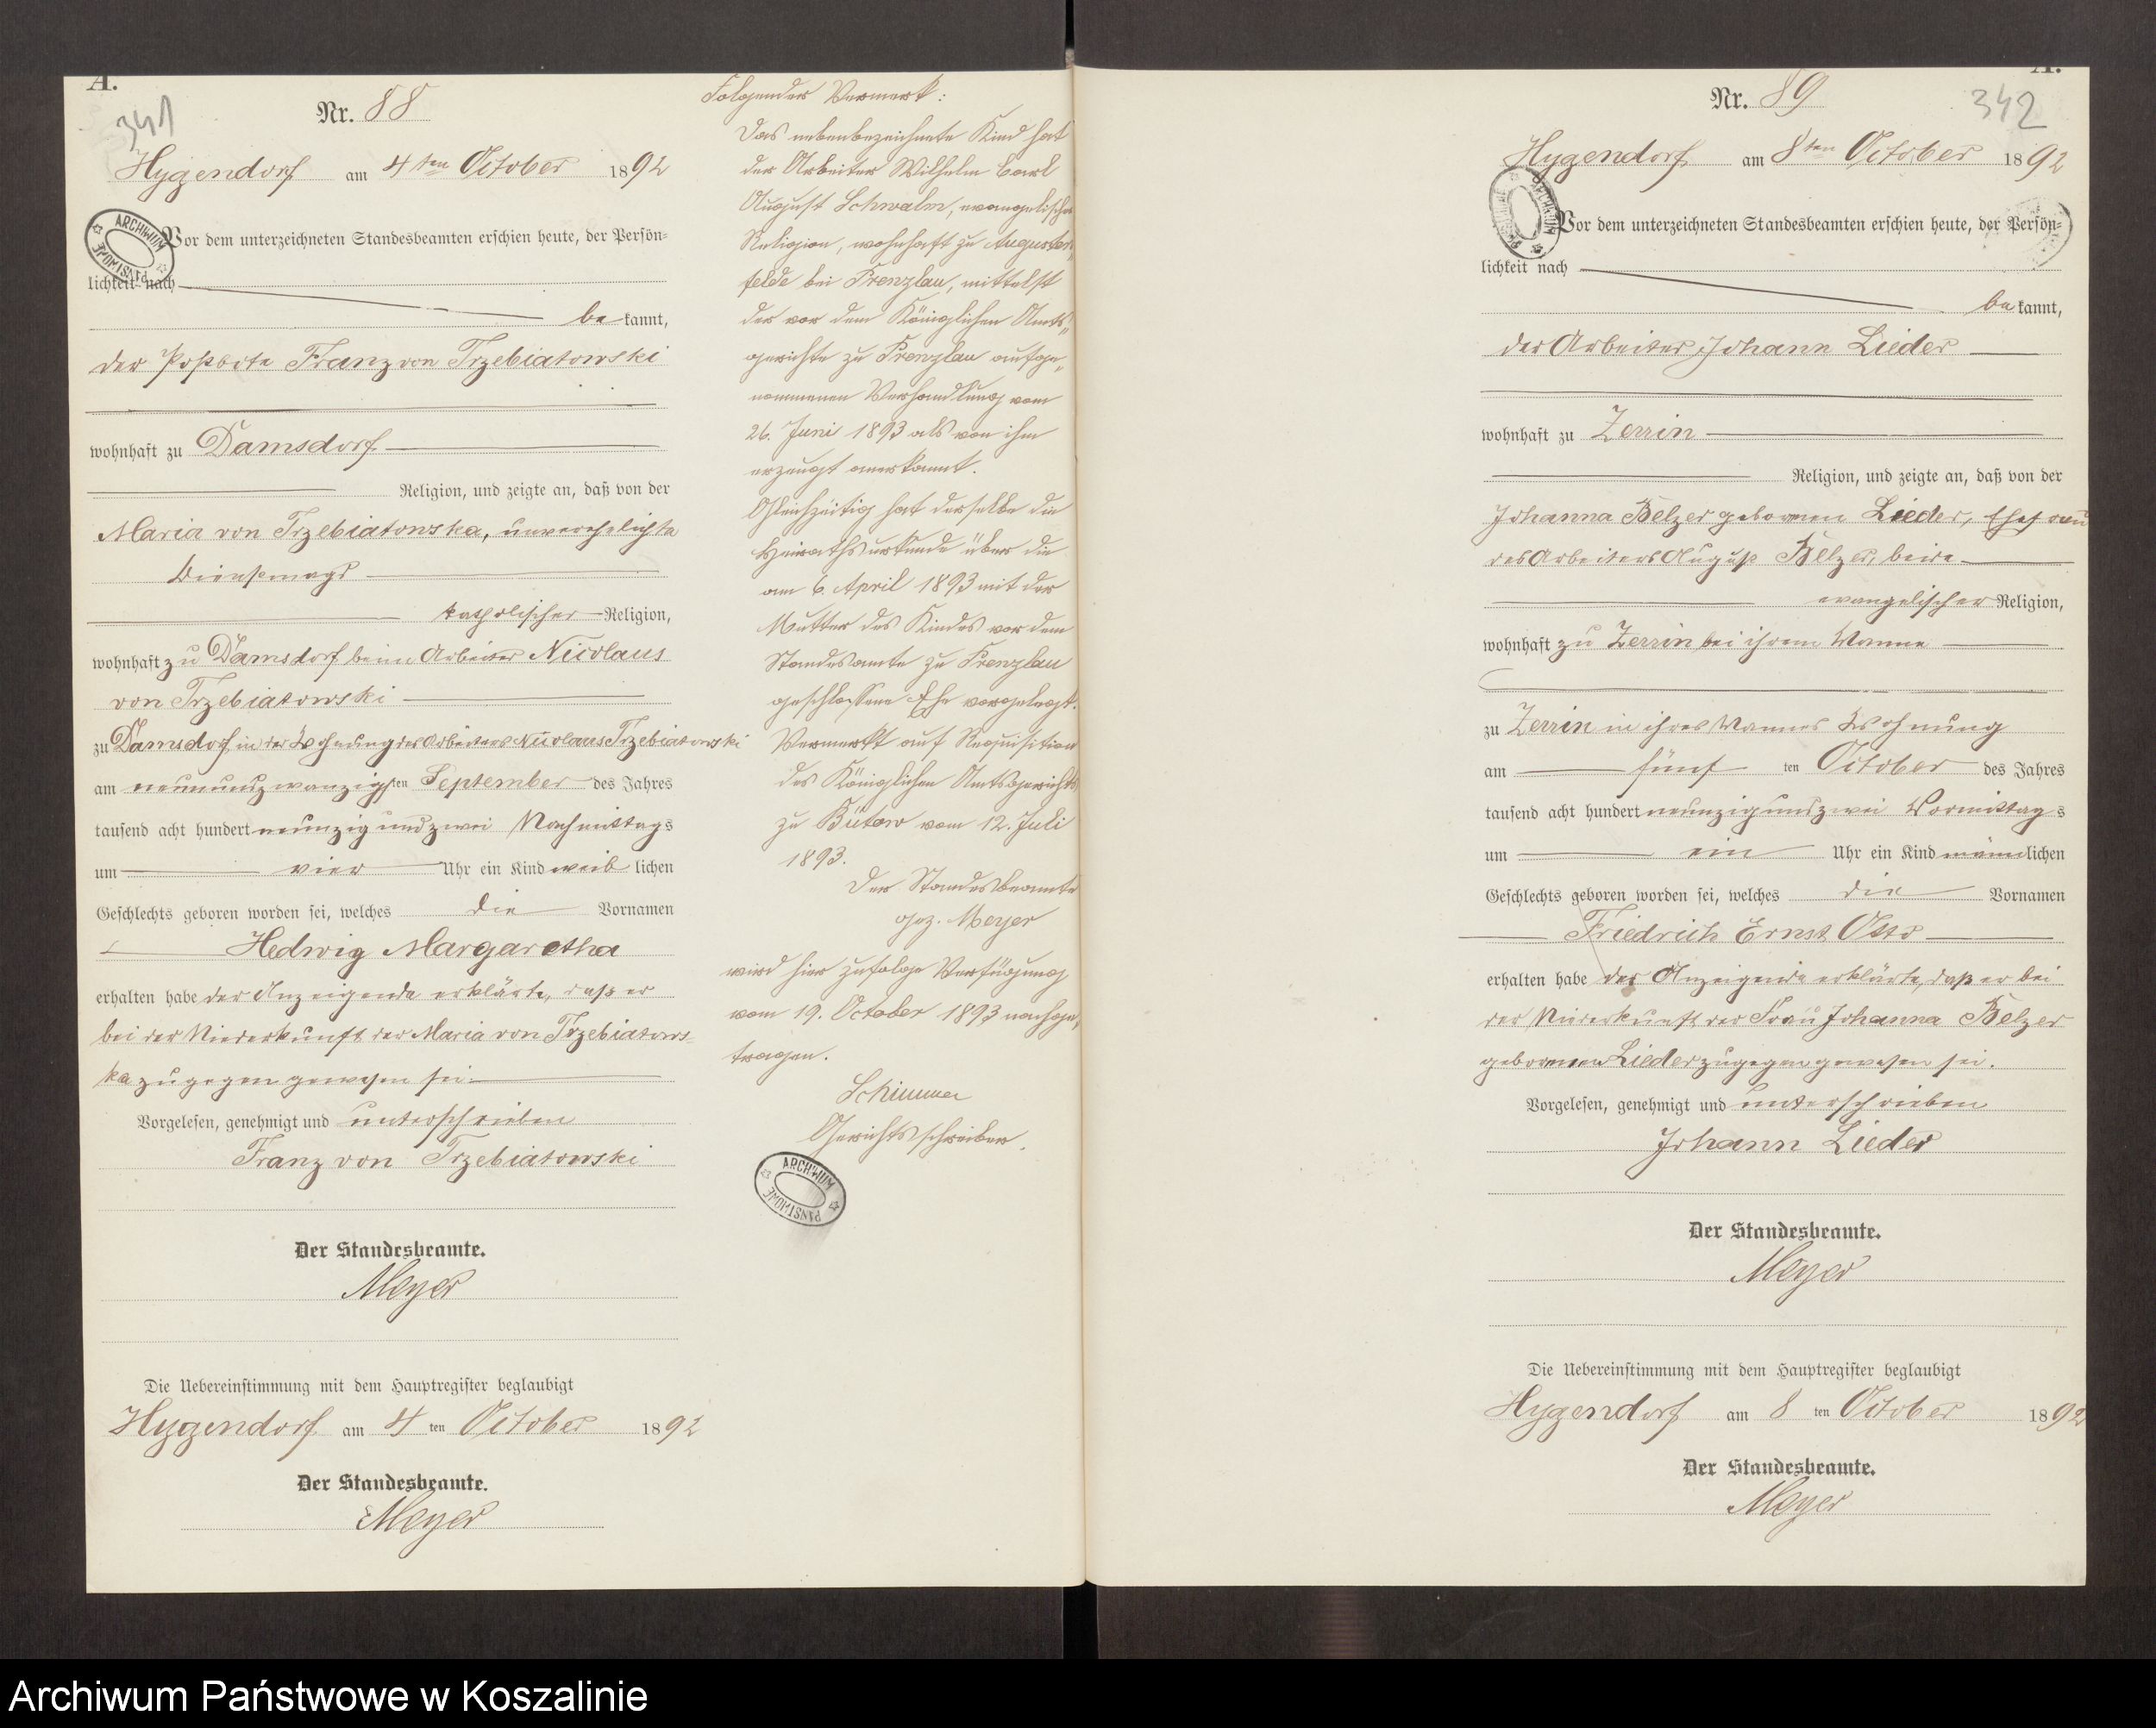 A.
341
Nr. 88
Hygendorf am 4ten October 1892
Vor dem unterzeichneten Standesbeamten erschien heute, der Persön-
lichkeit nach
be kannt,
der Postbote Franz von Trzebiatowski
wohnhaft zu Damsdorf
Religion, und zeigte an, daß von der
Maria von Trzebiatowska, unverehelichte
Dienstmagd
katholischer Religion,
wohnhaft zu Damsdorf beim Arbeiter Nicolaus
von Trzebiatowski
zu Damsdorf in der Wohnung des Arbeiters Nicolaus Trzebiatowski
am neunundzwanzigsten September des Jahres
tausend acht hundert neunzig und zwei Nachmittags
um vier Uhr ein Kind weib lichen
Geschlechts geboren worden sei, welches die Vornamen
Hedwig Margaretha
erhalten habe der Anzeigende erklärte, daß er
bei der Niederkunft der Maria von Trzebiatows-
ka zugegen gewesen sei.
Vorgelesen, genehmigt und unterschrieben
Franz von Trzebiatowski
Der Standesbeamte.
Meyer
Die Uebereinstimmung mit dem Hauptregister beglaubigt
Hygendorf am 4 ten October 1892
Der Standesbeamte.
Meyer
Folgender Vermerk:
Das nebenbezeichnete Kind hat
der Arbeiter Wilhelm Carl
August Schwalm, evangelischer
Religion, wohnhaft zu Augusten-
felde bei Prenzlau, mittelst
der vor dem Königlichen Amts-
gerichte zu Prenzlau aufge-
nommenen Verhandlung vom
26. Juni 1893 als von ihm
erzeugt anerkannt.
Gleichzeitig hat derselbe die
Heirathsurkunde über die
am 6. April 1893 mit der
Mutter des Kindes vor dem
Standesamte zu Prenzlau
geschlossene Ehe vorgelegt.
Vermerkt auf Requisition
des Königlichen Amtsgerichts
zu Bütow vom 12. Juli
1893.
Der Standesbeamte
gez. Meyer
wird hier zufolge Verfügung
vom 19. October 1893 nachge-
tragen.
Schimmer
Gerichtsschreiber.
ARCHIWUM PAŃSTWOWE
A.
342
Nr. 89
Hygendorf am 8ten October 1892
Vor dem unterzeichneten Standesbeamten erschien heute, der Persön-
lichkeit nach
be kannt,
der Arbeiter Johann Lieder
wohnhaft zu Zerrin
Religion, und zeigte an, daß von der
Johanna Belzer geborenen Lieder, Ehefrau
des Arbeiters August Belzer, beide
evangelischer Religion,
wohnhaft zu Zerrin bei ihrem Manne
zu Zerrin in ihres Mannes Wohnung
am fünf ten October des Jahres
tausend acht hundert neunzig und zwei Vormittag s
um ein Uhr ein Kind männlichen
Geschlechts geboren worden sei, welches die Vornamen
Friedrich Ernst Otto
erhalten habe der Anzeigende erklärte, daß er bei
der Niederkunft der Frau Johanna Belzer
geborenen Lieder zugegen gewesen sei.
Vorgelesen, genehmigt und unterschrieben
Johann Lieder
Der Standesbeamte.
Meyer
Die Uebereinstimmung mit dem Hauptregister beglaubigt
Hygendorf am 8 ten October 1892
Der Standesbeamte.
Meyer
Archiwum Państwowe w Koszalinie